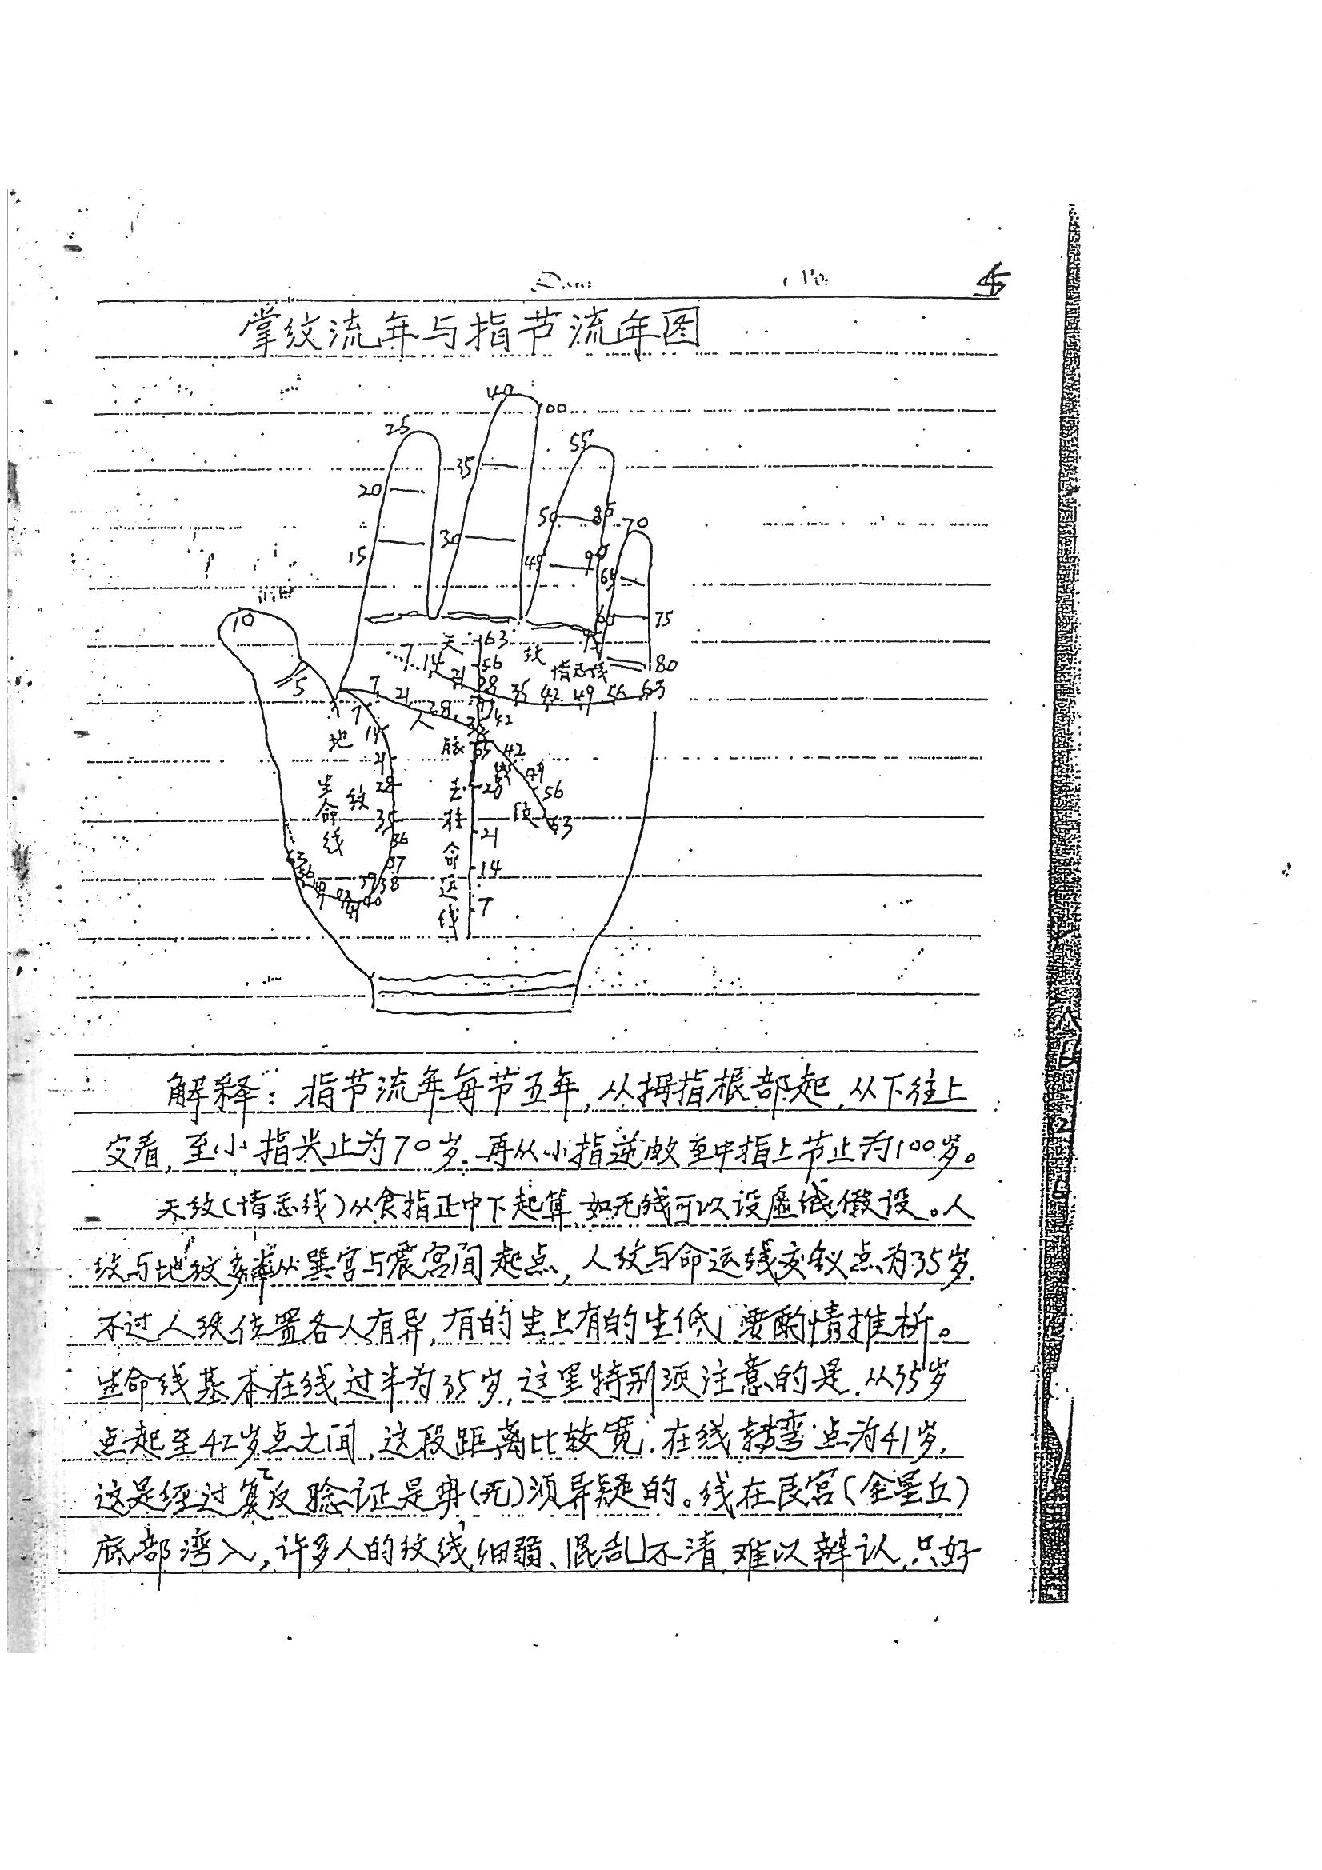 掌纹流年与指节流年图
40
100
25
55
35
20
50 85 70
15
30
45 90
65
10
60
75
95
80
天 63 纹
7 14 56 情志线
21
35 42 49 56 63
5
7 21 28
42
人
7
地 14
脉 35 42
21
49
生 纹 28
玉 28
56
命
35
柱 21
63
线
36
命 14
37
38
运
7
线
解释：指节流年每节五年，从拇指根部起，从下往上
交看，至小指尖止为70岁.再从小指逆数至中指上节止为100岁。
天纹(情志线)从食指正中下起算 如无线可以设虚线假设。人
纹与地纹 从巽宫与震宫间起点，人纹与命运线交钗点为35岁.
不过人纹位置各人有异，有的生上有的生低，要酌情推析。
生命线基本在线过半为35岁，这里特别须注意的是，从35岁
点起至42岁点之间，这段距离比较宽.在线转弯点为41岁，
这是经过复反验证是毋(无)须异疑的。线在艮宫(金星丘)
底部湾入，许多人的纹线，细弱、混乱不清，难以辨认，只好